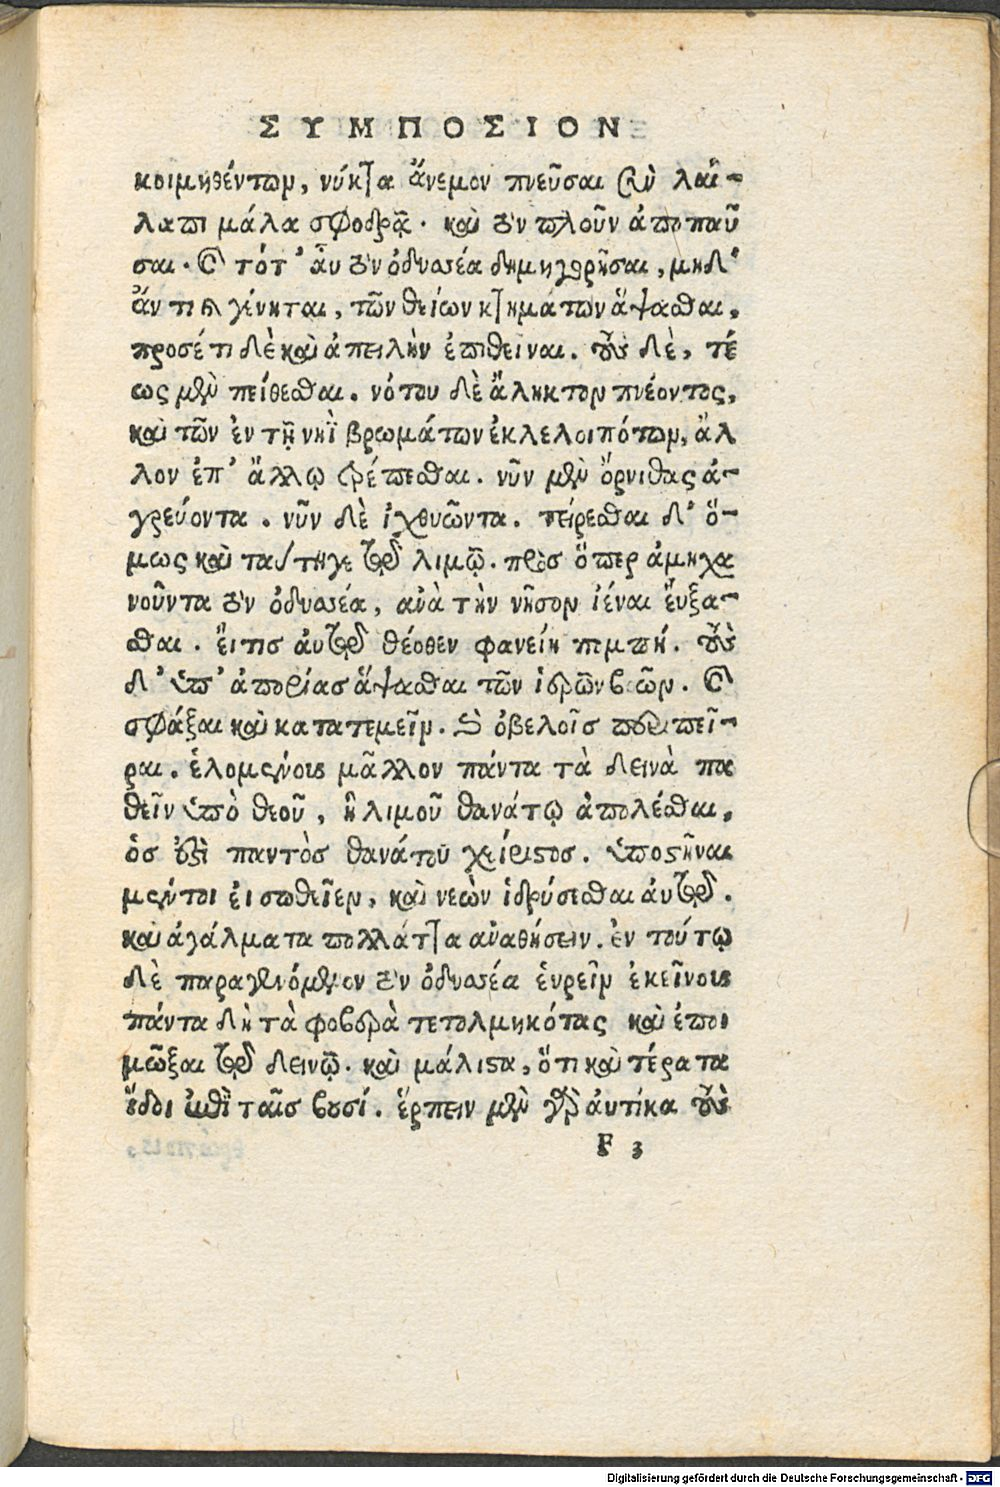 ΣΥΜΠΟΣΙΟΝ
κοιμηθέντων, νύκτα ἄνεμον πνεῦσαι σὺν λαί-
λαπι μάλα σφοδρᾷ. καὶ τὸν πλοῦν ἀποπαῦ
σαι. καὶ τότ' ἂυ τὸν ὀδυσσέα δημηγορῆσαι, μηδ'
ἄν τι καὶ γένηται, τῶν θείων κτημάτων ἅψασθαι,
προσέτι δὲ καὶ ἀπειλὴν ἐπιθεῖναι. τοὺς δὲ, τέ
ως μὲν πείθεσθαι. νότου δὲ ἄληκτον πνέοντος,
καὶ τῶν ἐν τῇ νηῒ βρωμάτων ἐκλελοιπότων, ἄλ
λον ἐπ' ἄλλῳ τρέπεσθαι. νῦν μὲν ὄρνιθας ἀ-
γρεύοντα. νῦν δὲ ἰχθυῶντα. τείρεσθαι δ' ὅ-
μως καὶ ταύτῃγε τῷ λιμῷ. πρὸς ὅπερ ἀμηχα
νοῦντα τὸν ὀδυσσέα, ἀνὰ τὴν νῆσον ἰέναι ἔυξα-
σθαι. ἔι τις ἀυτῷ θέοθεν φανείη πεμπή. τοὺς
δ' ὑπ' ἀπορίας ἅψασθαι τῶν ἱερῶν βοῶν. καὶ
σφάξαι καὶ κατατεμεῖν. καὶ ὀβελοῖς περιπεῖ-
ραι. ἑλομένοις μᾶλλον πάντα τὰ δεινὰ πα
θεῖν ὑπὸ θεοῦ, ἢ λιμοῦ θανάτῳ ἀπολέσθαι,
ὅς ἐστὶ παντὸς θανάτου χείριστος. ὑποστῆναι
μέντοι ἐι σωθεῖεν, καὶ νεὼν ἱδρύσεσθαι ἀυτῷ.
καὶ ἀγάλματα πολλάττα ἀναθήσειν. ἐν τούτῳ
δὲ παραγενόμενον τὸν ὀδυσσέα ἑυρεῖν ἐκεῖνους
πάντα δὴ τὰ φοβερὰ τετολμηκότας καὶ ἐποι
μῶξαι τῷ δεινῷ. καὶ μάλιστα, ὅτι καὶ τέρατα
ἔδδι ἐπὶ ταῖς βουσί. ἕρπειν μὲν γὰρ ἀυτίκα τοὺς
F 3
Digitalisierung gefördert durch die Deutsche Forschungsgemeinschaft - DFG